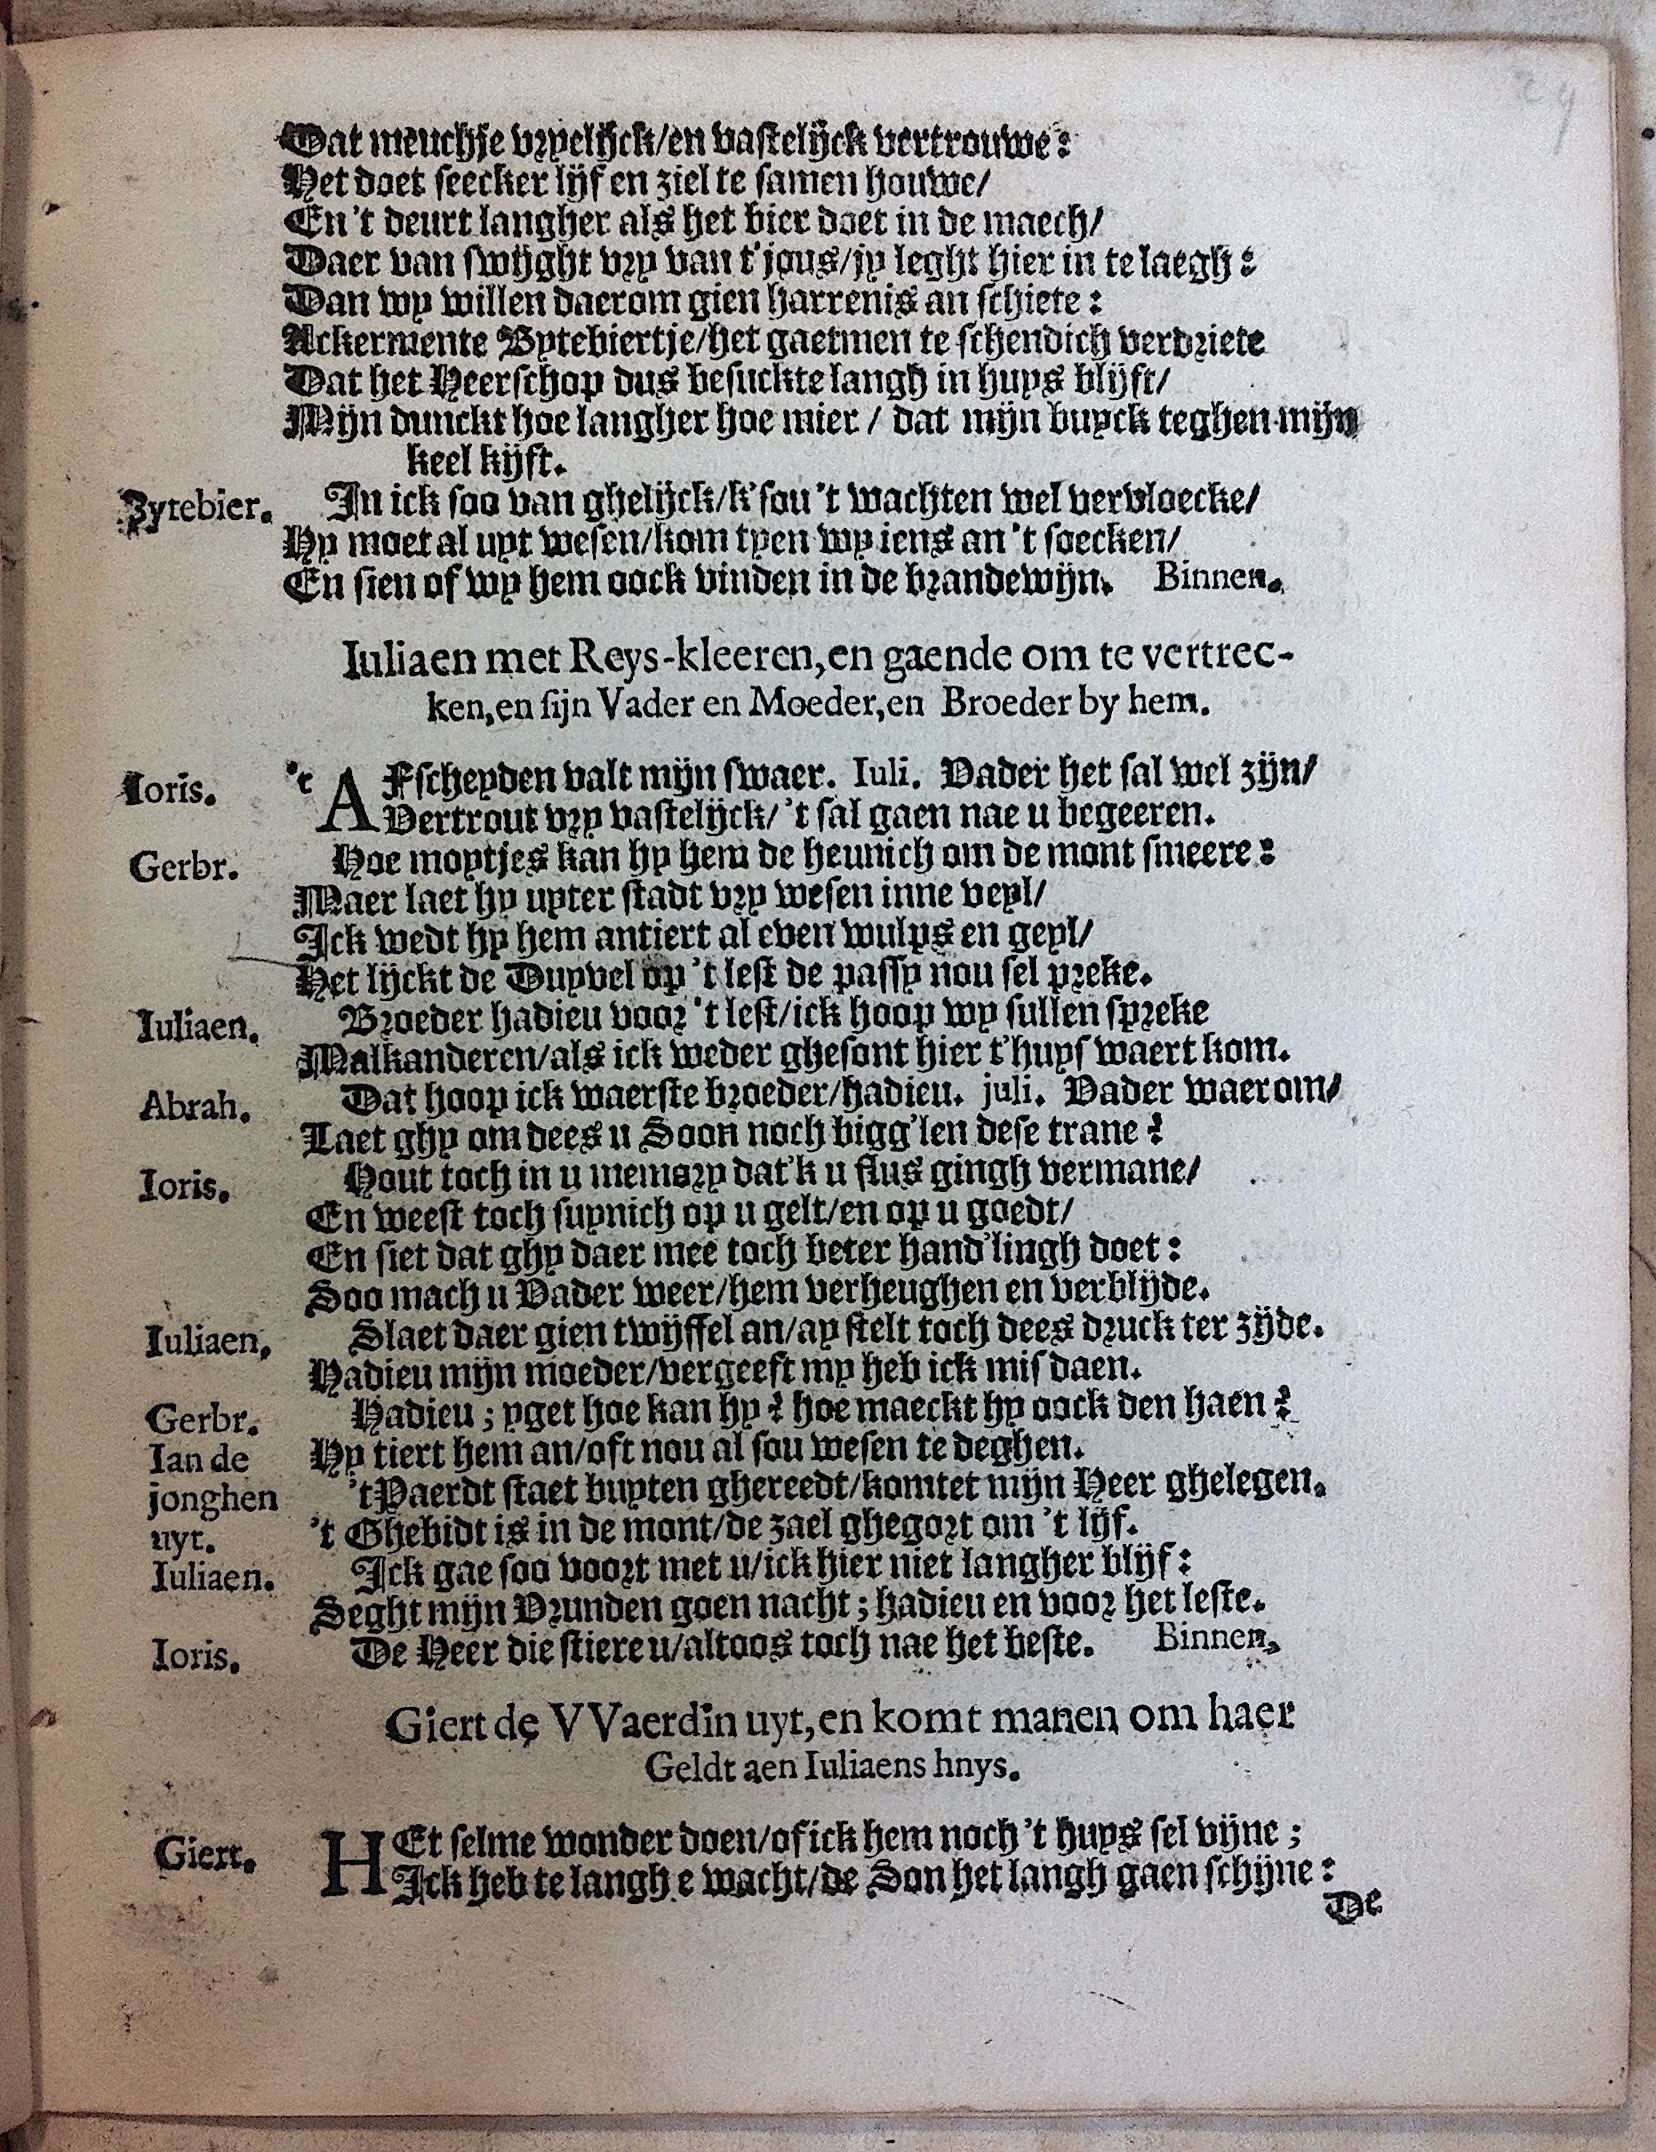 Dat meuchje vryelijck/en vastelijck vertrouwe:
Het doet seecker lijf en ziel te samen houwe/
En 't deurt langher als het bier doet in de maech/
Daer van swijght vry van t'jous/jy leght hier in te laegh:
Dan wy willen daerom gien harrenis an schiete:
Ackermente Bytebiertje/het gaetmen te schendich verdriete
Dat het Heerschop dus besuckte langh in huys blijft/
Mijn dunckt hoe langher hoe mier / dat mijn buyck teghen mijn
keel kijft.
Bytebier. In ick soo van ghelijck/k'sou 't wachten wel vervloecke/
Hy moet al uyt wesen/kom tyen wy iens an 't soecken/
En sien of wy hem oock vinden in de brandewijn. Binnen.
Iuliaen met Reys-kleeren, en gaende om te vertrec-
ken, en sijn Vader en Moeder, en Broeder by hem.
Ioris. 't AFscheyden valt mijn swaer. Iuli. Vader het sal wel zijn/
Vertrout vry vastelijck/'t sal gaen nae u begeeren.
Gerbr. Hoe moytjes kan hy hem de heunich om de mont smeere:
Maer laet hy uyter stadt vry wesen inne veyl/
Ick wedt hy hem antiert al even wulps en geyl/
Het lijckt de Duyvel op 't lest de passy nou sel preke.
Iuliaen. Broeder hadieu voor 't lest/ick hoop wy sullen spreke
Malkanderen/als ick weder ghesont hier t'huys waert kom.
Abrah. Dat hoop ick waerste broeder/hadieu. juli. Vader waerom/
Laet ghy om dees u Soon noch bigg'len dese trane?
Ioris. Hout toch in u memory dat'k u flus gingh vermane/
En weest toch suynich op u gelt/en op u goedt/
En siet dat ghy daer mee toch beter hand'lingh doet:
Soo mach u Vader weer/hem verheughen en verblijde.
Iuliaen, Slaet daer gien twijffel an/ay stelt toch dees druck ter zijde.
Hadieu mijn moeder/vergeeft my heb ick mis daen.
Gerbr. Hadieu; yget hoe kan hy? hoe maeckt hy oock den haen?
Hy tiert hem an/oft nou al sou wesen te deghen.
Ian de jonghen uyt. 't Paerdt staet buyten ghereedt/komtet mijn Heer ghelegen.
't Ghebidt is in de mont/de zael ghegort om 't lijf.
Iuliaen. Ick gae soo voort met u/ick hier niet langher blijf:
Seght mijn Vrunden goen nacht; hadieu en voor het leste.
Ioris. De Heer die stiere u/altoos toch nae het beste. Binnen,
Giert de VVaerdin uyt, en komt manen om haer
Geldt aen Iuliaens hnys.
Giert. HEt selme wonder doen/of ick hem noch 't huys sel vijne;
Ick heb te langh e wacht/de Son het langh gaen schijne:
De